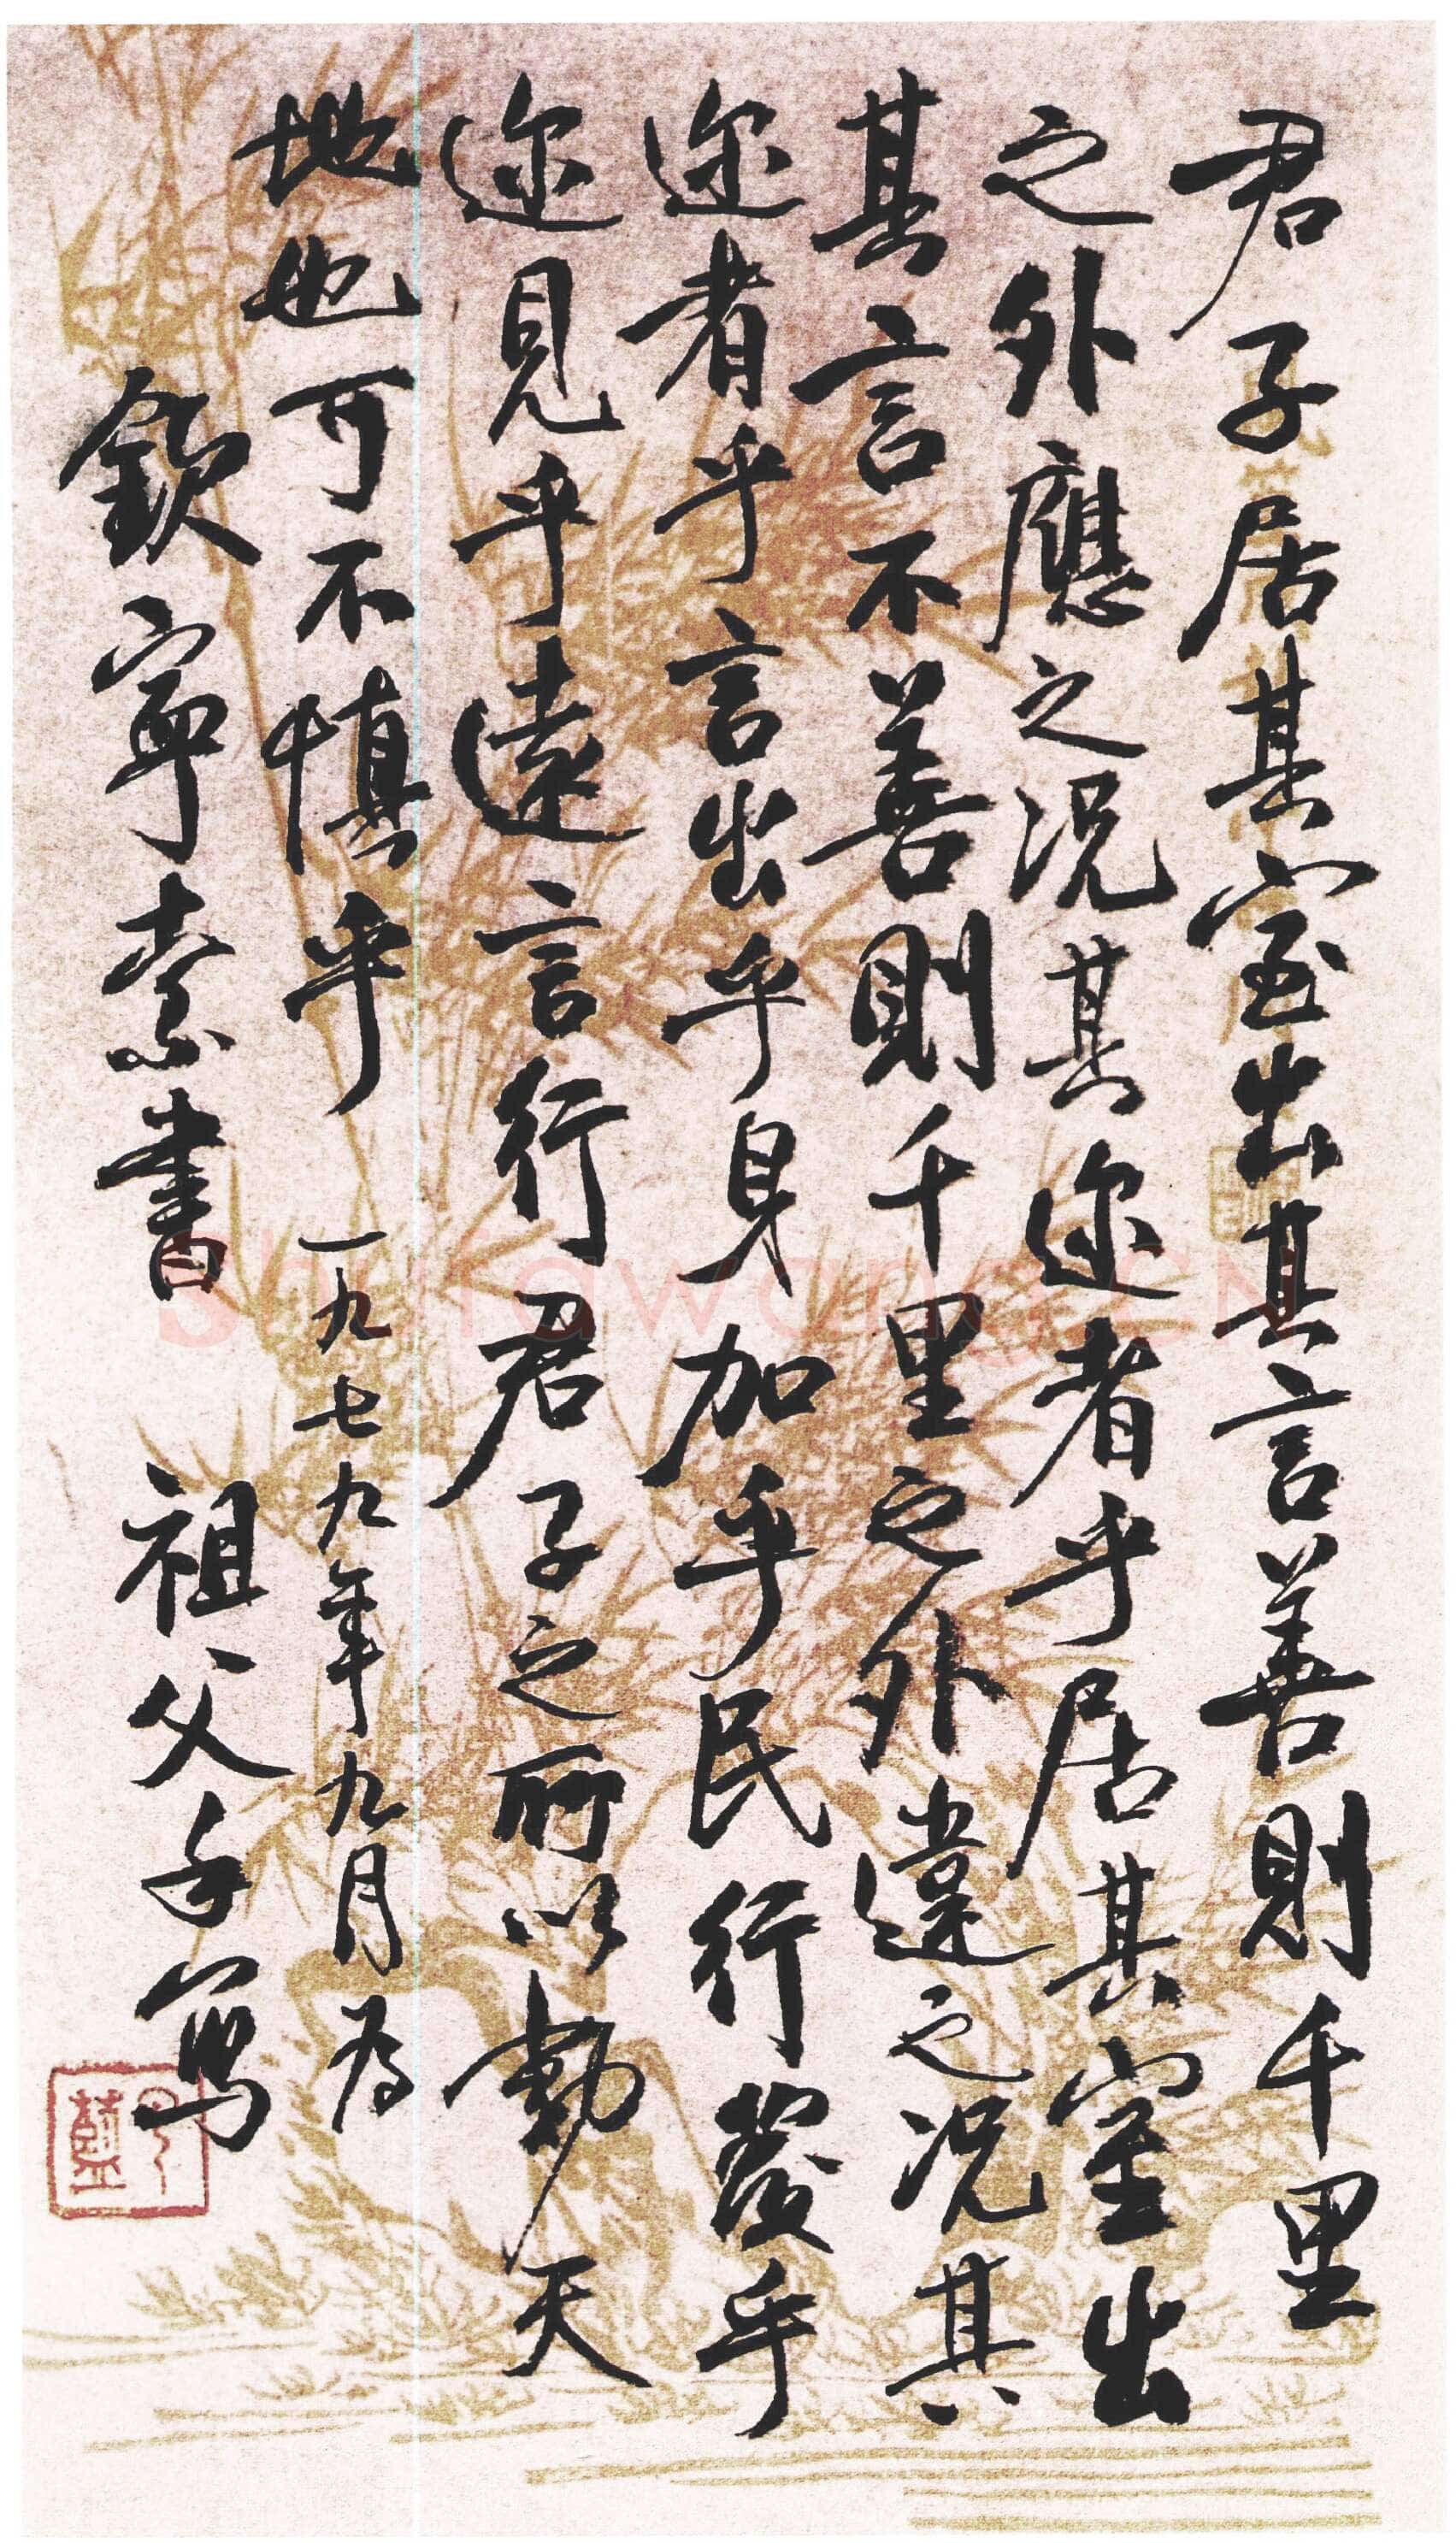 君子居其室出其言善則千里
之外應之况其迩者乎居其室出
其言不善則千里之外違之况其
迩者乎言出乎身加乎民行發乎
迩見乎遠言行君子之所以動天
地也可不慎乎 一九七九年九月为
欽寧索書 祖父手寫
Shufawang.CN